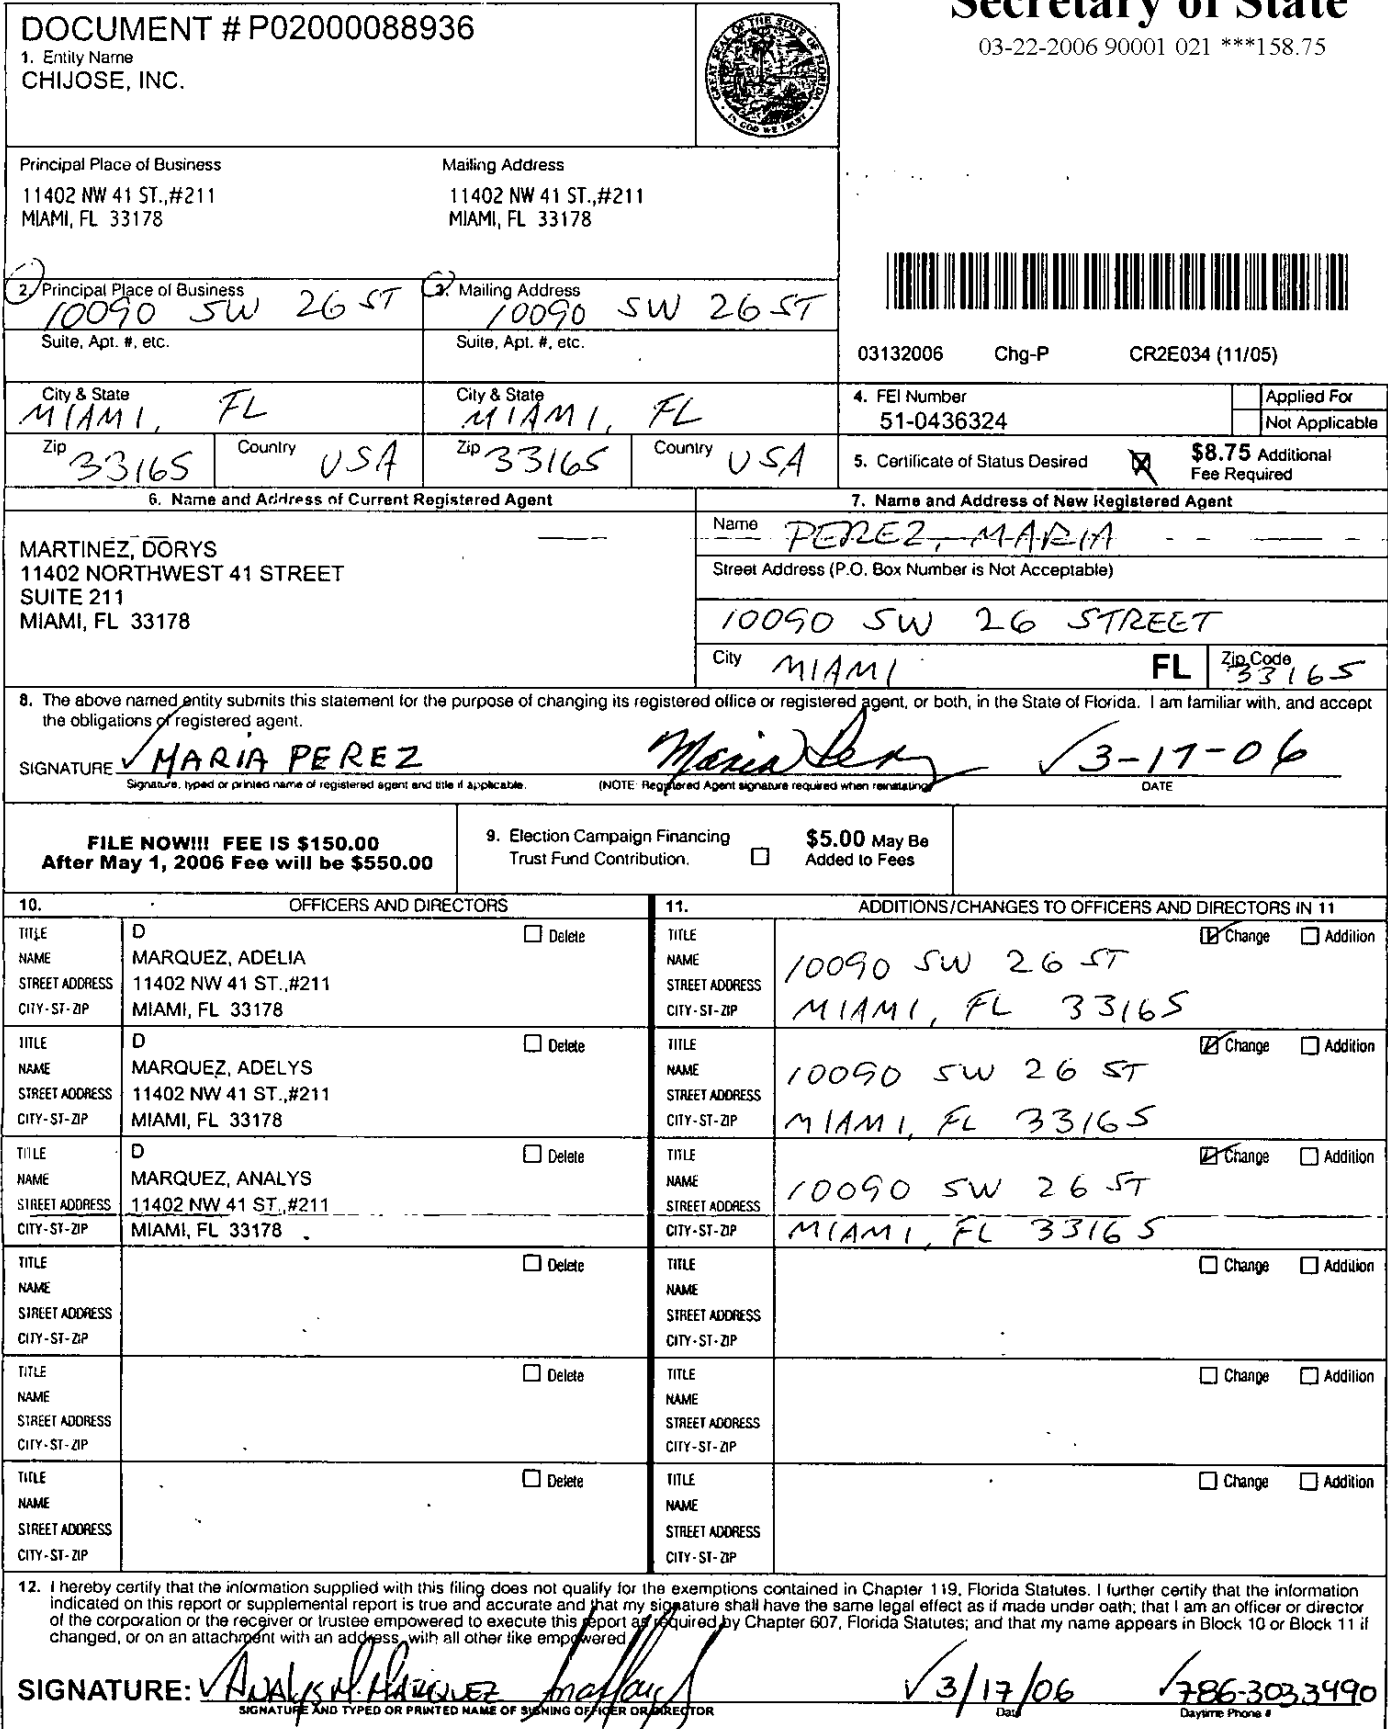 Secretary of State
03-22-2006 90001 021 ***158.75
DOCUMENT # P02000088936
1. Entity Name
CHIJOSE, INC.
GREAT SEAL OF THE STATE OF FLORIDA
IN GOD WE TRUST
Principal Place of Business
11402 NW 41 ST.,#211
MIAMI, FL 33178
Mailing Address
11402 NW 41 ST.,#211
MIAMI, FL 33178
2. Principal Place of Business
10090 SW 26 ST
Suite, Apt. #, etc.
City & State
MIAMI, FL
Zip 33165 Country USA
3. Mailing Address
10090 SW 26 ST
Suite, Apt. #, etc.
City & State
MIAMI, FL
Zip 33165 Country USA
03132006 Chg-P CR2E034 (11/05)
4. FEI Number
51-0436324
Applied For
Not Applicable
5. Certificate of Status Desired
$8.75 Additional
Fee Required
6. Name and Address of Current Registered Agent
MARTINEZ, DORYS
11402 NORTHWEST 41 STREET
SUITE 211
MIAMI, FL 33178
7. Name and Address of New Registered Agent
Name PEREZ, MARIA
Street Address (P.O. Box Number is Not Acceptable)
10090 SW 26 STREET
City MIAMI FL Zip Code 33165
8. The above named entity submits this statement for the purpose of changing its registered office or registered agent, or both, in the State of Florida. I am familiar with, and accept
the obligations of registered agent.
SIGNATURE MARIA PEREZ Maria Perez 3-17-06
Signature, typed or printed name of registered agent and title if applicable. (NOTE: Registered Agent signature required when reinstating) DATE
FILE NOW!!! FEE IS $150.00
After May 1, 2006 Fee will be $550.00
9. Election Campaign Financing
Trust Fund Contribution.
$5.00 May Be
Added to Fees
10. OFFICERS AND DIRECTORS
TITLE D Delete
NAME MARQUEZ, ADELIA
STREET ADDRESS 11402 NW 41 ST.,#211
CITY-ST-ZIP MIAMI, FL 33178
TITLE D Delete
NAME MARQUEZ, ADELYS
STREET ADDRESS 11402 NW 41 ST.,#211
CITY-ST-ZIP MIAMI, FL 33178
TITLE D Delete
NAME MARQUEZ, ANALYS
STREET ADDRESS 11402 NW 41 ST.,#211
CITY-ST-ZIP MIAMI, FL 33178
TITLE Delete
NAME
STREET ADDRESS
CITY-ST-ZIP
TITLE Delete
NAME
STREET ADDRESS
CITY-ST-ZIP
TITLE Delete
NAME
STREET ADDRESS
CITY-ST-ZIP
11. ADDITIONS/CHANGES TO OFFICERS AND DIRECTORS IN 11
TITLE Change Addition
NAME
STREET ADDRESS 10090 SW 26 ST
CITY-ST-ZIP MIAMI, FL 33165
TITLE Change Addition
NAME
STREET ADDRESS 10090 SW 26 ST
CITY-ST-ZIP MIAMI, FL 33165
TITLE Change Addition
NAME
STREET ADDRESS 10090 SW 26 ST
CITY-ST-ZIP MIAMI, FL 33165
TITLE Change Addition
NAME
STREET ADDRESS
CITY-ST-ZIP
TITLE Change Addition
NAME
STREET ADDRESS
CITY-ST-ZIP
TITLE Change Addition
NAME
STREET ADDRESS
CITY-ST-ZIP
12. I hereby certify that the information supplied with this filing does not qualify for the exemptions contained in Chapter 119, Florida Statutes. I further certify that the information
indicated on this report or supplemental report is true and accurate and that my signature shall have the same legal effect as if made under oath; that I am an officer or director
of the corporation or the receiver or trustee empowered to execute this report as required by Chapter 607, Florida Statutes; and that my name appears in Block 10 or Block 11 if
changed, or on an attachment with an address, with all other like empowered.
SIGNATURE: ANALYS M. MARQUEZ 3/17/06 786-3033490
SIGNATURE AND TYPED OR PRINTED NAME OF SIGNING OFFICER OR DIRECTOR Date Daytime Phone #